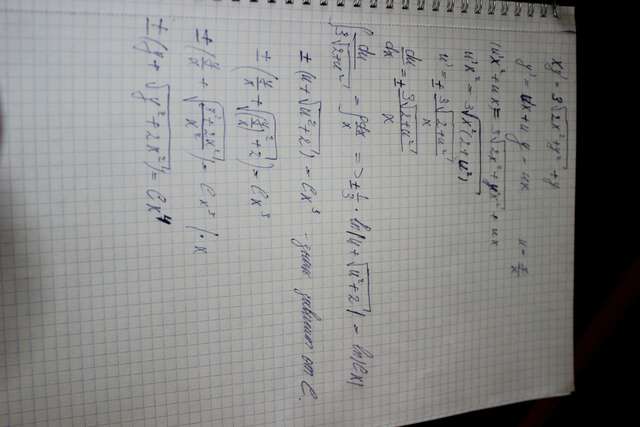 xy' = 3√(2x²+y²) + y
y' = u'x + u y = ux u = y/x
u'x² + ux = 3√(2x²+u²x²) + ux
u'x² = 3√(x²(2+u²))
u' = ± 3√(2+u²) / x
du/dx = ± 3√(2+u²) / x
∫ du / 3√(2+u²) = ∫ ± dx/x => ± 1/3 · ln|u + √(u²+2)| = ln|Cx|
± (u + √(u²+2)) = Cx³ - знак зависит от C.
± (y/x + √((y/x)²+2)) = Cx³
± (y/x + √((y²+2x²)/x²)) = Cx³ | · x
± (y + √(y²+2x²)) = Cx⁴